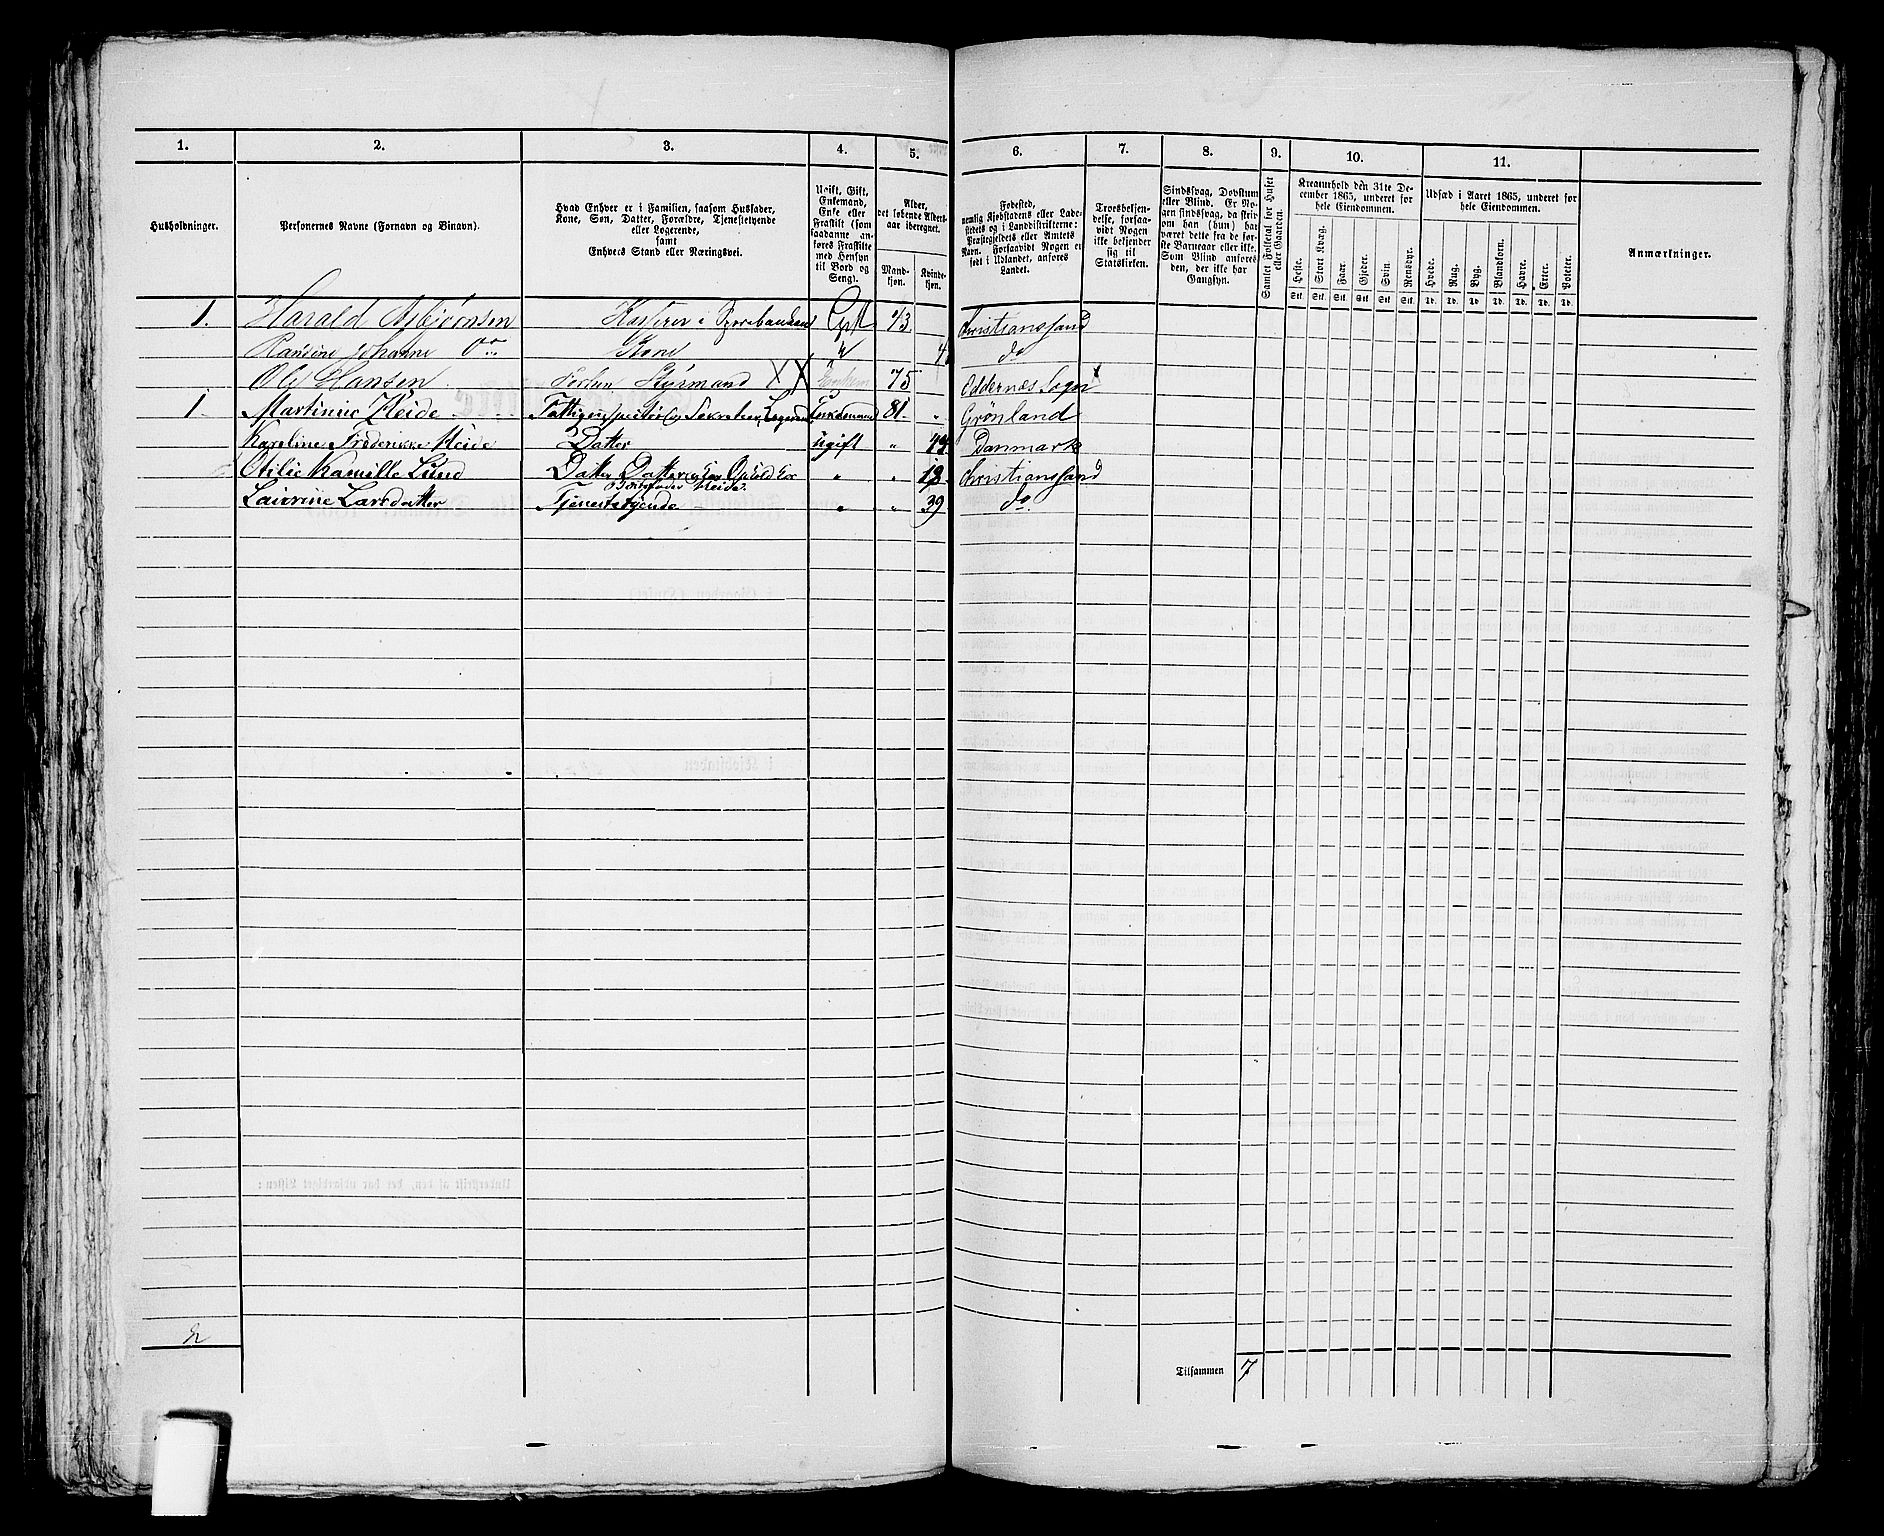 1. 2. 3. 4. 5. 6. 7. 8. 9. 10. 11.
Husholdninger.
Personernes Navne (Fornavn og Binavn).
Hvad Enhver er i Familien, saasom Husfader,
Kone, Søn, Datter, Forældre, Tjenestetyende
eller Logerende,
samt
Enhvers Stand eller Næringsvei.
Ugift, Gift,
Enkemand,
Enke eller
Fraskilt (som
saadanne an-
føres Fraskilte
med Hensyn
til Bord og
Seng).
Alder,
det løbende Alders-
aar iberegnet.
Mand-
kjøn.
Kvinde-
kjøn.
Fødested,
nemlig Kjøbstadens eller Lade-
stedets og i Landdistrikterne:
Præstegjeldets eller Amtets
Navn. Forsaavidt Nogen er
født i Udlandet, anføres
Landet.
Troesbekjen-
delse, forsaa-
vidt Nogen
ikke bekjender
sig til
Statskirken.
Sindssvag, Døvstum
eller Blind. Er No-
gen sindssvag, da skriv
om han (hun) har
været dette fra de før-
ste Barneaar eller ikke.
Som Blind anføres
den, der ikke har
Gangsyn.
Samlet Folketal for Huset
eller Gaarden.
Kreaturhold den 31te De-
cember 1865, underet for
hele Eiendommen.
Heste. Stort Kvæg. Faar. Gjeder. Svin. Rensdyr.
Stk. Stk. Stk. Stk. Stk. Stk.
Udsæd i Aaret 1865, underet for
hele Eiendommen.
Hvede. Rug. Byg. Blandkorn. Havre. Erter. Poteter.
Td. Td. Td. Td. Td. Td. Td.
Anmærkninger.
1. Harald Asbjörnsen Kasserer i Sparebanken Gift 43 Christianssand
Johanne Kone " 4 do
Ole Hansen Styrmand XX Enkem 75 Oddernæs Sogn
1 Martinus Heide Sekretær, Logerende Enkemand 81. " Grönland
Karoline Frederikke Heide Datter ugift " 44 Danmark
Otilie Kamille Lund Datter Datter Ophold hos " " 18 Christianssand
Heide.
Laurine Larsdatter Tjenestetyende " " 39 do.
2
Tilsammen 7